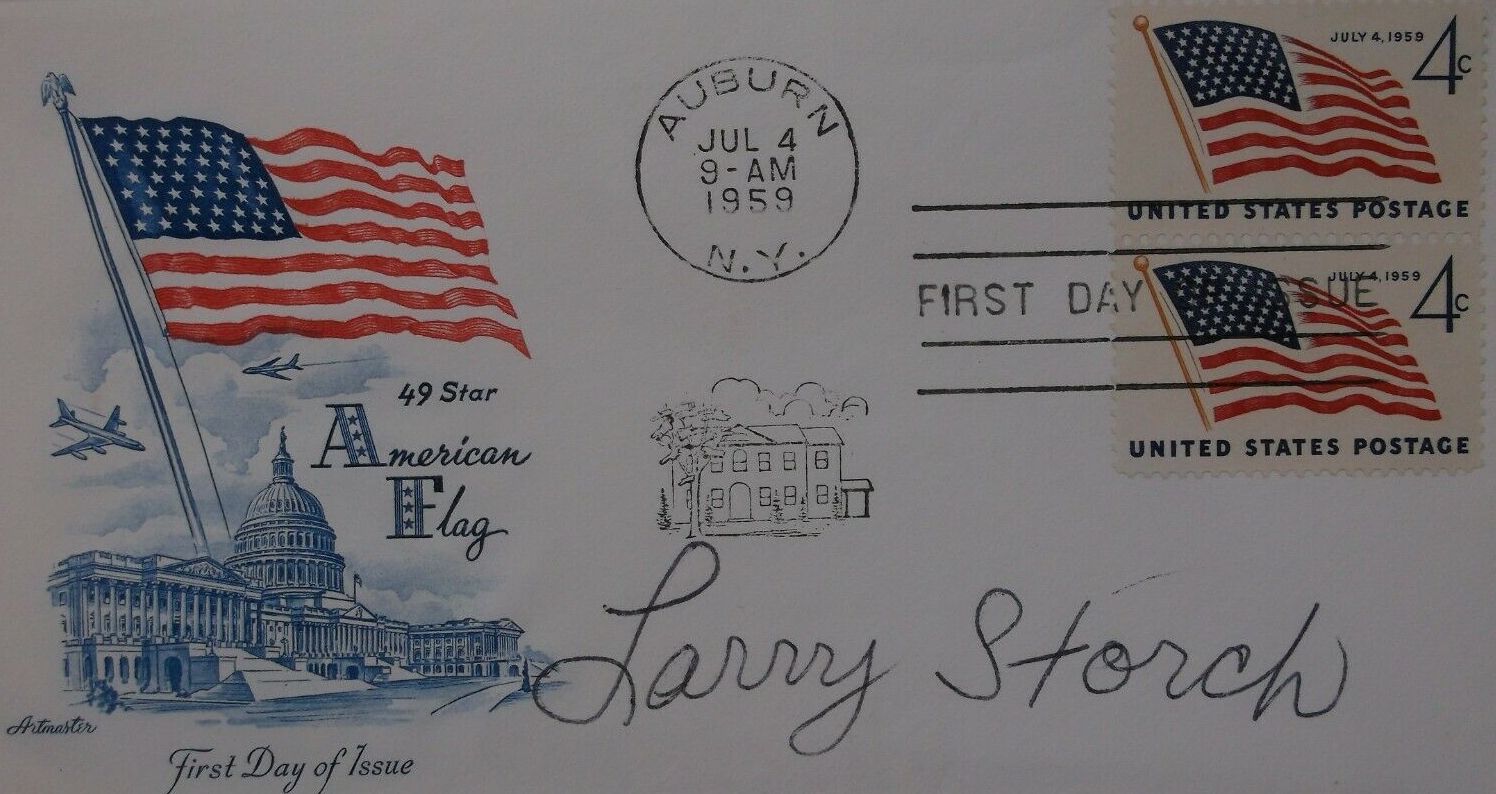 49 Star
American
Flag
Artmaster
First Day of Issue
AUBURN
JUL 4
9-AM
1959
N.Y.
JULY 4, 1959
4c
UNITED STATES POSTAGE
FIRST DAY ISSUE
JULY 4, 1959
4c
UNITED STATES POSTAGE
Larry Storch